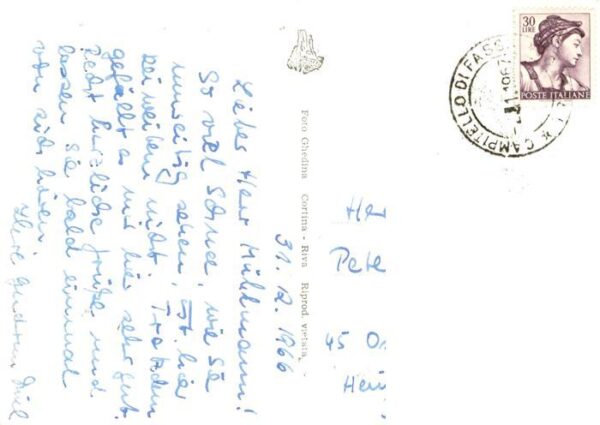 31.12.1966
Lieber Herr Mühlmann!
So viel Sonne, wie sie
umseitig sehen, ist hier
bei weitem nicht. Trotzdem
gefällt es mir hier sehr gut.
Recht herzliche Grüße und
lassen Sie bald einmal
von sich hören
Ihre Gudrun
Foto Ghedina Cortina - Riva Riprod. vietata
30
LIRE
POSTE ITALIANE
CAMPITELLO DI FASS
Her
Pete
45 O
Hein